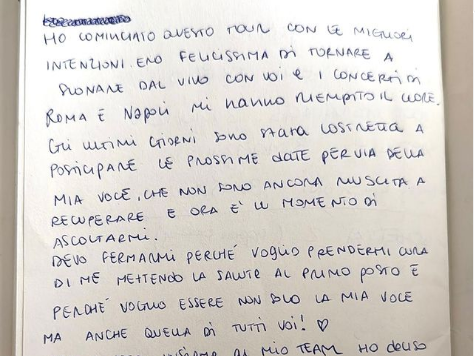 HO COMINCIATO QUESTO TOUR CON LE MIGLIORI
INTENZIONI. ERO FELICISSIMA DI TORNARE A
SUONARE DAL VIVO CON VOI E I CONCERTI DI
ROMA E NAPOLI MI HANNO RIEMPITO IL CUORE.
GLI ULTIMI GIORNI SONO STATA COSTRETTA A
POSTICIPARE LE PROSSIME DATE PER VIA DELLA
MIA VOCE, CHE NON SONO ANCORA RIUSCITA A
RECUPERARE E ORA È IL MOMENTO DI
ASCOLTARMI.
DEVO FERMARMI PERCHÉ VOGLIO PRENDERMI CURA
DI ME METTENDO LA SALUTE AL PRIMO POSTO E
PERCHÉ VOGLIO ESSERE NON SOLO LA MIA VOCE
MA ANCHE QUELLA DI TUTTI VOI! ♡
INSIEME AL MIO TEAM HO DECISO